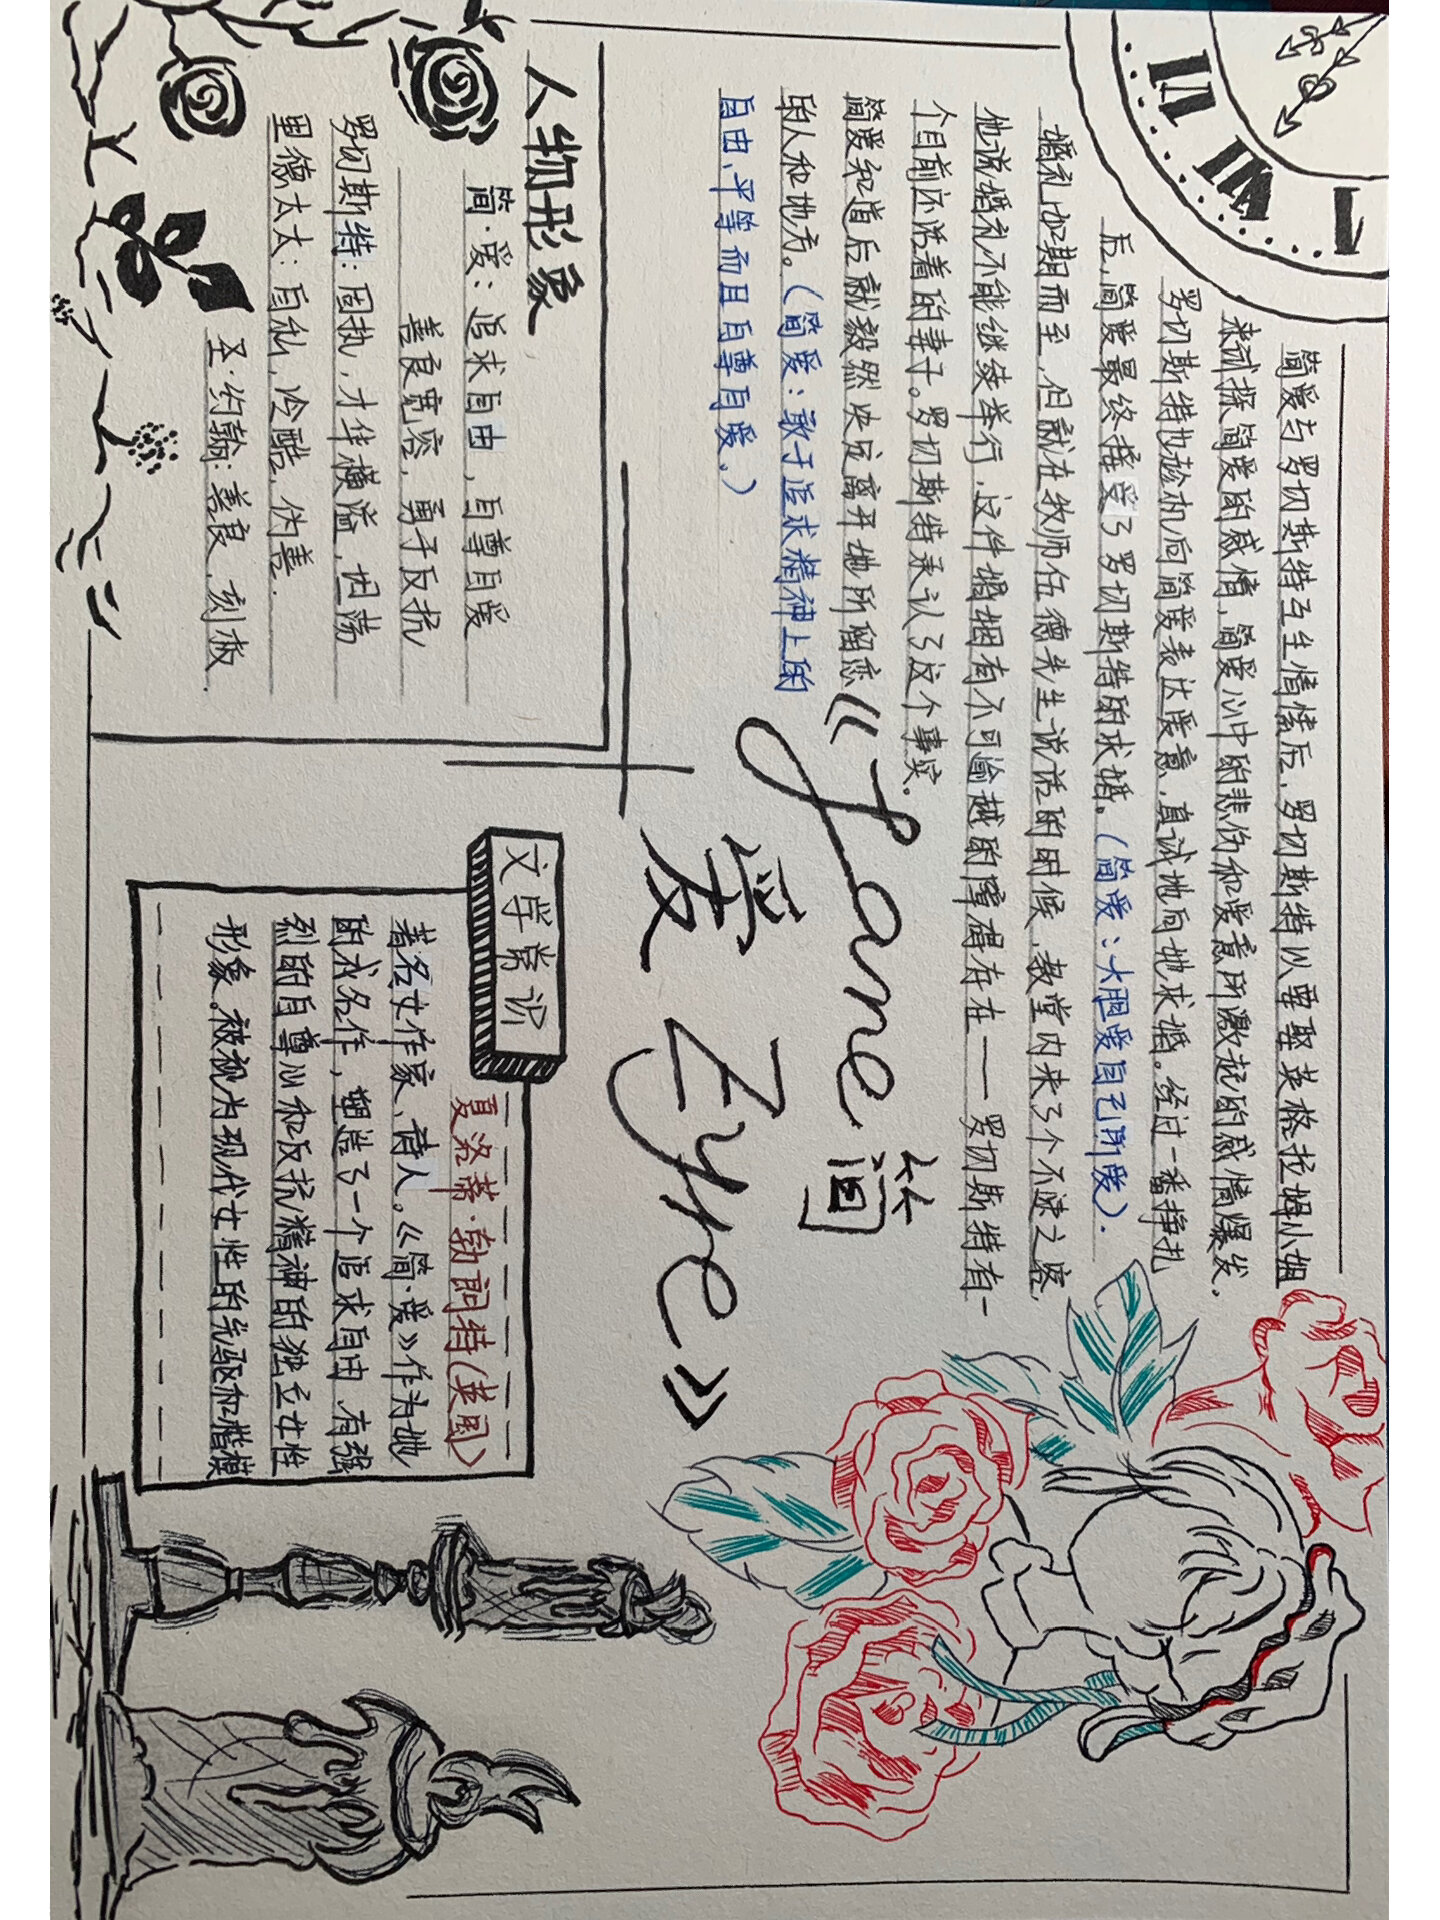 II
VII
I
简爱与罗切斯特互生情愫后，罗切斯特以要娶英格拉姆小姐
来试探简爱的感情，简爱心中的悲伤和爱意所激起的感情爆发，
罗切斯特也趁机向简爱表达爱意，真诚地向她求婚。经过一番挣扎
后，简爱最终接受了罗切斯特的求婚。（简爱：大胆爱自己所爱）.
婚礼如期而至，但就在牧师伍德先生说话的时候，教堂内来了个不速之客
他说婚礼不能继续举行，这件婚姻有不可逾越的障碍存在——罗切斯特有一
个目前还活着的妻子。罗切斯特承认了这个事实.
简爱知道后就毅然决定离开她所留恋
的人和地方。（简爱：敢于追求精神上的
自由、平等而且自尊自爱。）
《Jane 简
爱 Eyre》
人物形象
简·爱：追求自由，自尊自爱
善良宽容，勇于反抗
罗切斯特：固执，才华横溢，坦荡
里德太太：自私，冷酷，伪善.
圣·约翰：善良，刻板.
文学常识
夏洛蒂·勃朗特(英国)
著名女作家、诗人。《简·爱》作为她
的成名作，塑造了一个追求自由，有强
烈的自尊心和反抗精神的独立女性
形象。被视为现代女性的先驱和楷模